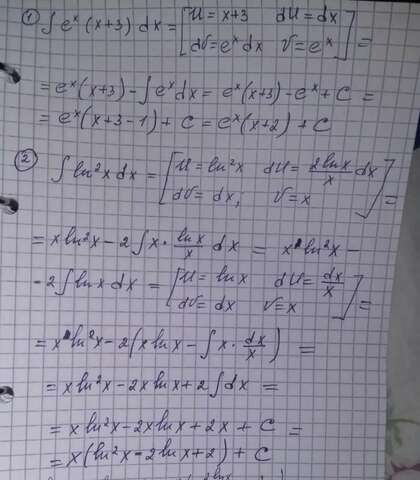 ① ∫ eˣ (x+3) dx = [ U = x+3   dU = dx
dV = eˣ dx   V = eˣ ] =
= eˣ(x+3) − ∫ eˣ dx = eˣ(x+3) − eˣ + C =
= eˣ(x+3−1) + C = eˣ(x+2) + C
② ∫ ln²x dx = [ U = ln²x   dU = 2lnx/x dx
dV = dx,   V = x ] =
= x ln²x − 2∫ x · lnx/x dx = x ln²x −
− 2∫ lnx dx = [ U = lnx   dU = dx/x
dV = dx   V = x ] =
= x ln²x − 2(x lnx − ∫ x · dx/x) =
= x ln²x − 2x lnx + 2∫ dx =
= x ln²x − 2x lnx + 2x + C =
= x(ln²x − 2lnx + 2) + C